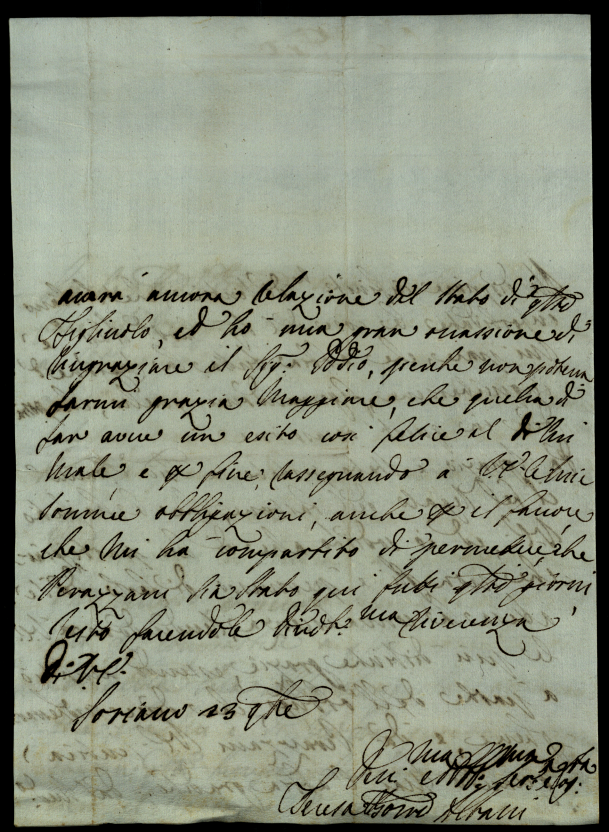 avara' ancora relazione del stato di q.to
Figliuolo, ed ho una gran ocassione di
ringraziare il Sig.r Iddio, perche non poteva
farmi grazia Maggiore, che quella di
far avere un esito così felice al di lui
Male, e per fine rassegnando a V.E. le mie
somme obbligazioni, anche per il favore
che mi ha compartito di permettere, che
Perazzani sia stato qui tutti q.ti giorni
resto facendole divot.ma riverenza
Di V.E.
Soriano 23 9bre
Teresa Albani